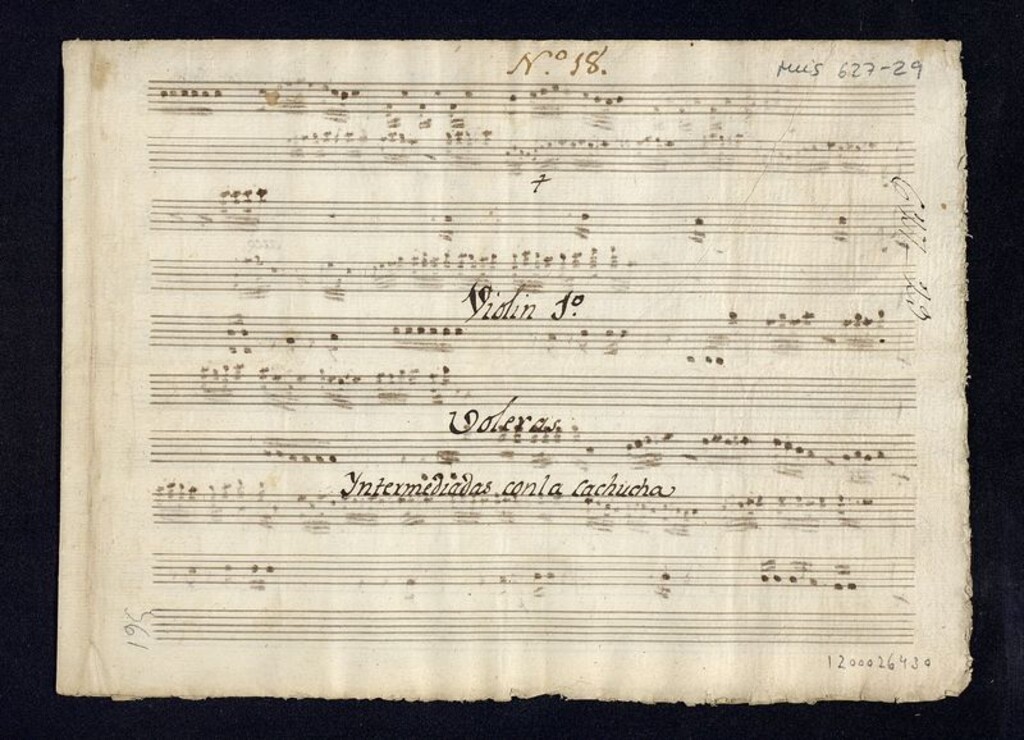 Nº 18.
Mus 627-29
Violin 1º.
Voleras.
Intermediadas con la Cachucha
195
1200026430